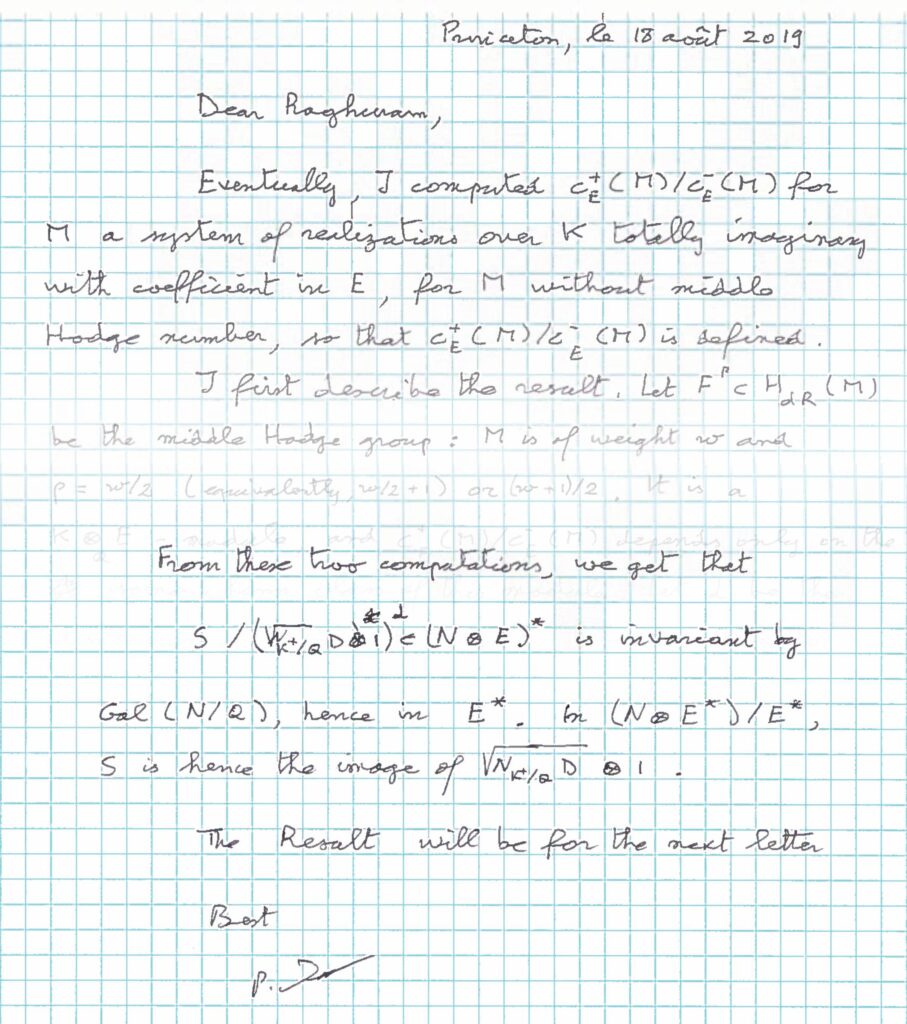 Princeton, le 18 août 2019
Dear Raghuram,
Eventually, I computed c⁺_E(M)/c⁻_E(M) for
M a system of realizations over K totally imaginary
with coefficient in E, for M without middle
Hodge number, so that c⁺_E(M)/c⁻_E(M) is defined.
I first describe the result. Let F^p ⊂ H_dR(M)
be the middle Hodge group: M is of weight w and
p = w/2 (equivalently, w/2+1) or (w+1)/2. It is a
K⊗E - module and c⁺(M)/c⁻(M) depends only on the
From these two computations, we get that
S /(√N_{K⁺/Q} D ⊗ 1)^d ∈ (N ⊗ E)* is invariant by
Gal (N/Q), hence in E*. In (N ⊗ E*)/E*,
S is hence the image of √N_{K⁺/Q} D ⊗ 1.
The Result will be for the next letter
Best
P. D